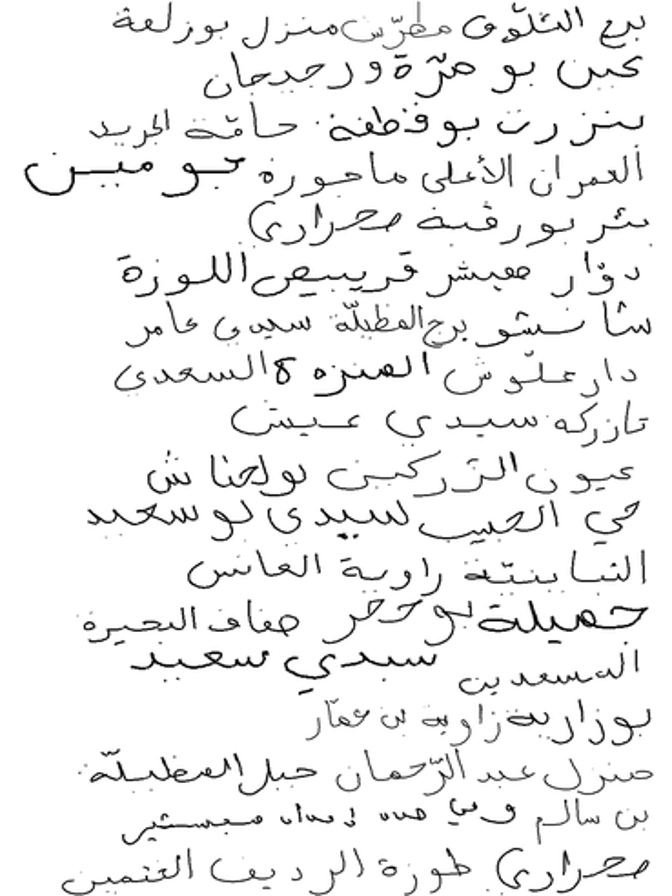 برج الثلّوق مطرّش منزل بوزلفة
عين بو مرّة ورجيجان
بنزرت بوفطفة حامّة الجريد
العمران الأعلى ماجورة جومين
بئر بورقبة صحراري
دوّار هيشر قريبيص اللوزة
سانشو برج الفظيلّة سيدي عامر
دار علّوش المنزه 8 السعدي
تازركه سيدي عيش
عيون الزركين بولحناش
حي الحبيب سيدي بوسعيد
النباينتة زاوية العانس
جميلة بوحجر ضفاف البحيرة
المسعدين سيدي سعيد
بوزارية زاوية بن عمّار
منزل عبد الرّحمان جبل الفظيلّة
بن سالم
صحراري طوزة الرديف الغنمين